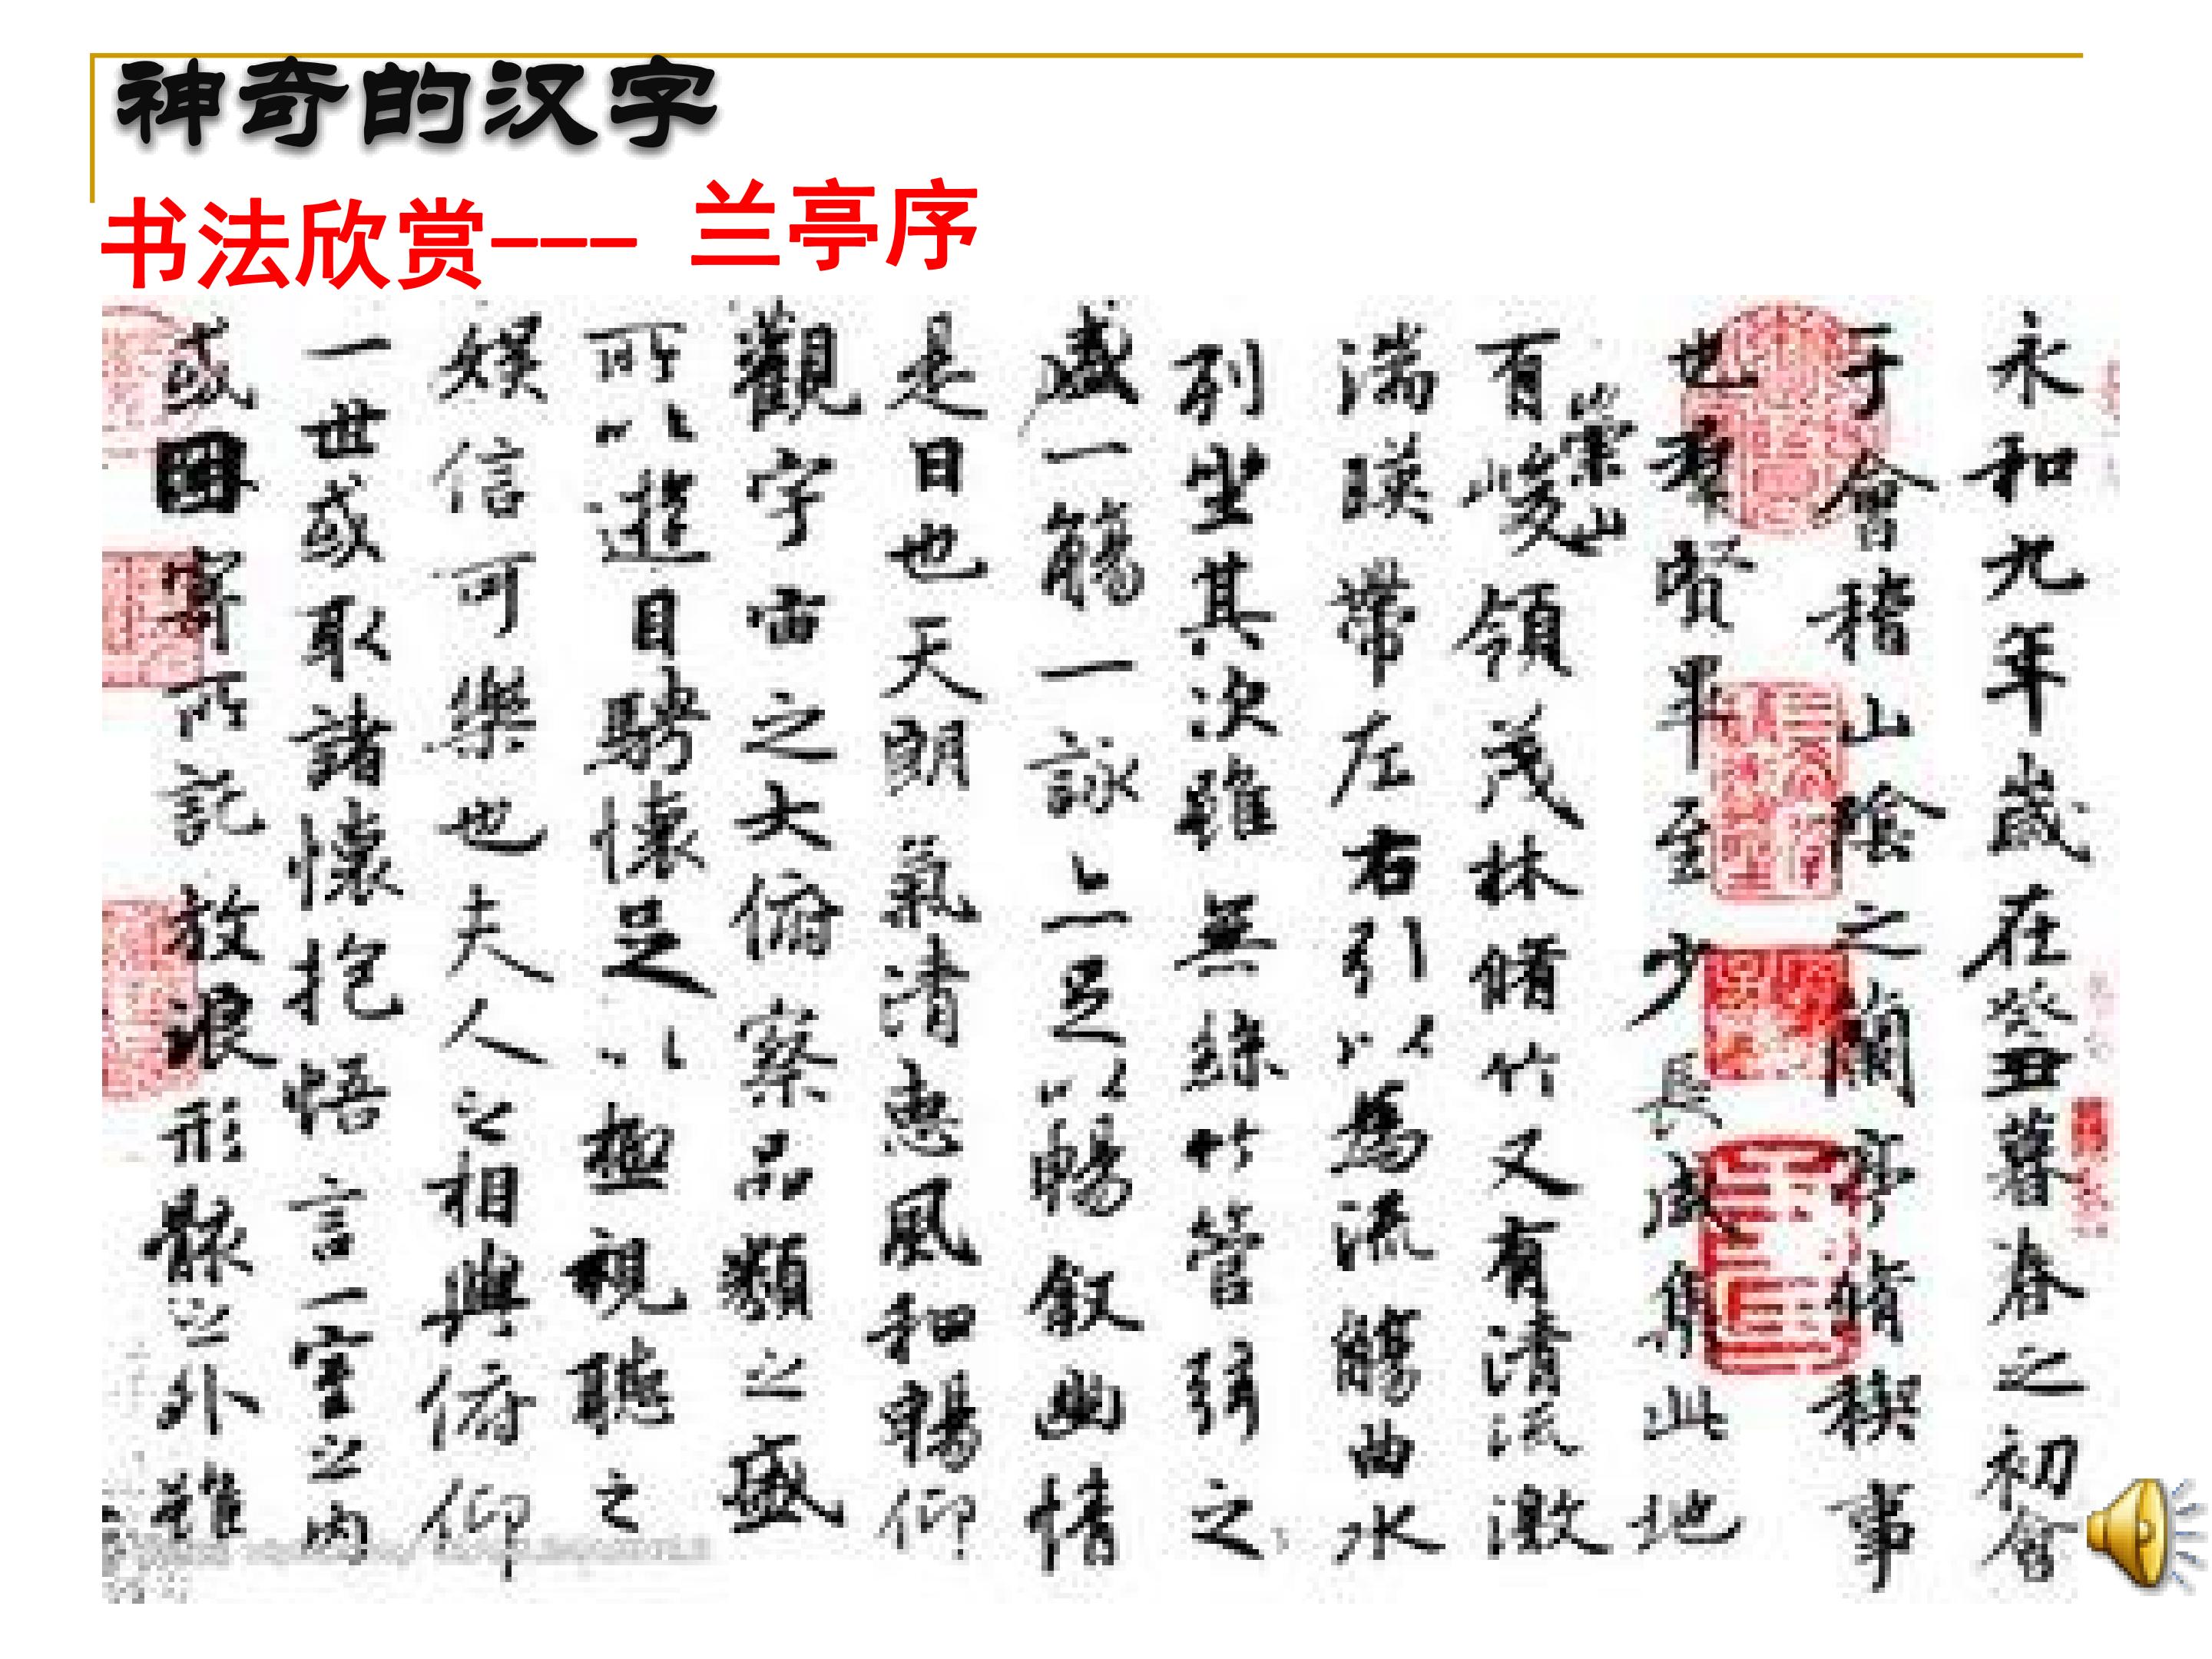 神奇的汉字
书法欣赏---兰亭序
永和九年歲在癸丑暮春之初會
于會稽山陰之蘭亭脩稧事
也羣賢畢至少長咸集此地
有崇山峻領茂林脩竹又有清流激
湍暎帶左右引以為流觴曲水
列坐其次雖無絲竹管弦之
盛一觴一詠亦足以暢敘幽情
是日也天朗氣清惠風和暢仰
觀宇宙之大俯察品類之盛
所以遊目騁懷足以極視聽之
娛信可樂也夫人之相與俯仰
一世或取諸懷抱悟言一室之內
或因寄所託放浪形骸之外雖